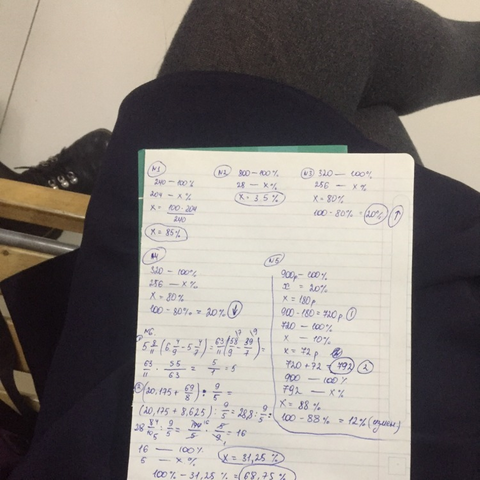 №1
240 — 100%
204 — x%
x = 100·204
240
x = 85%
№2
800 — 100%
28 — x%
x = 3.5%
№3 320 — 100%
256 — x%
x = 80%
100 - 80% = 20% ↑
№4
320 — 100%
256 — x%
x = 80%
100 - 80% = 20% ↓
№5
900р — 100%
x = 20%
x = 180р
900 - 180 = 720р 1
720 — 100%
x — 10%
x = 72р
720 + 72 = 792 2
900 — 100%
792 — x%
x = 88%
100 - 88% = 12%
№6
63/11 · 55/63 = 5/1 = 5
(20,175 + 69/8) : 9/5 =
(20,175 + 8,625) : 9/5 = 28,8 : 9/5 =
= 16
16 — 100%
5 — x%
x = 31,25%
100% - 31,25% = 68,75%